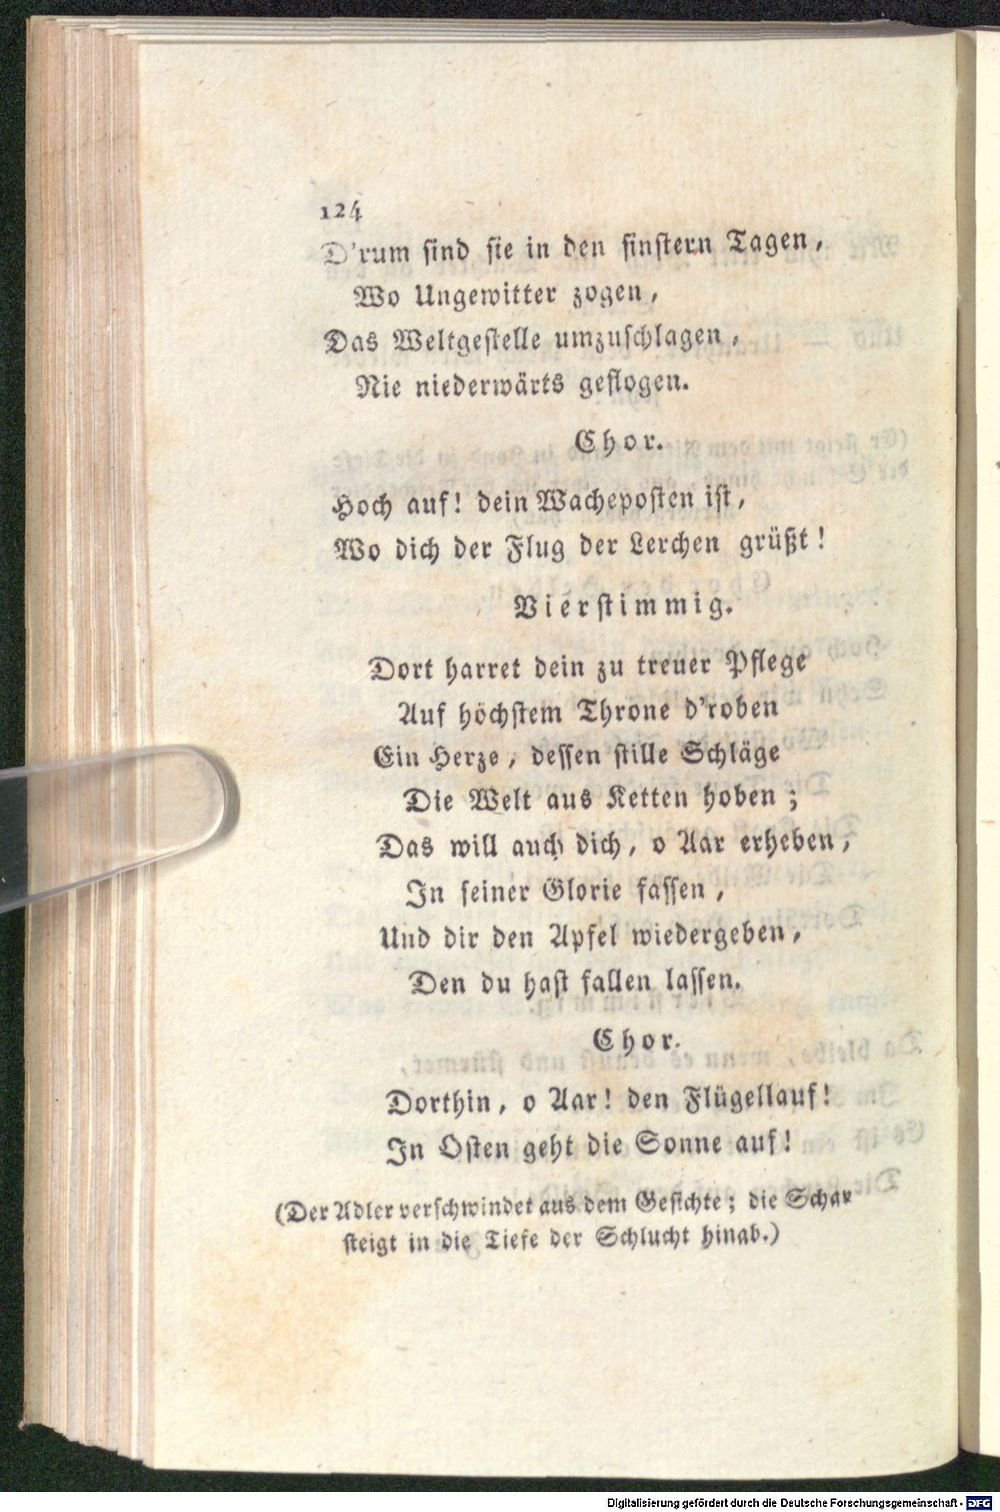 124
D'rum sind sie in den finstern Tagen,
Wo Ungewitter zogen,
Das Weltgestelle umzuschlagen,
Nie niederwärts geflogen.
Chor.
Hoch auf! dein Wacheposten ist,
Wo dich der Flug der Lerchen grüßt!
Vierstimmig.
Dort harret dein zu treuer Pflege
Auf höchstem Throne d'roben
Ein Herze, dessen stille Schläge
Die Welt aus Ketten hoben;
Das will auch dich, o Aar erheben,
In seiner Glorie fassen,
Und dir den Apfel wiedergeben,
Den du hast fallen lassen.
Chor.
Dorthin, o Aar! den Flügellauf!
In Osten geht die Sonne auf!
(Der Adler verschwindet aus dem Gesichte; die Schar
steigt in die Tiefe der Schlucht hinab.)
Digitalisierung gefördert durch die Deutsche Forschungsgemeinschaft - DFG